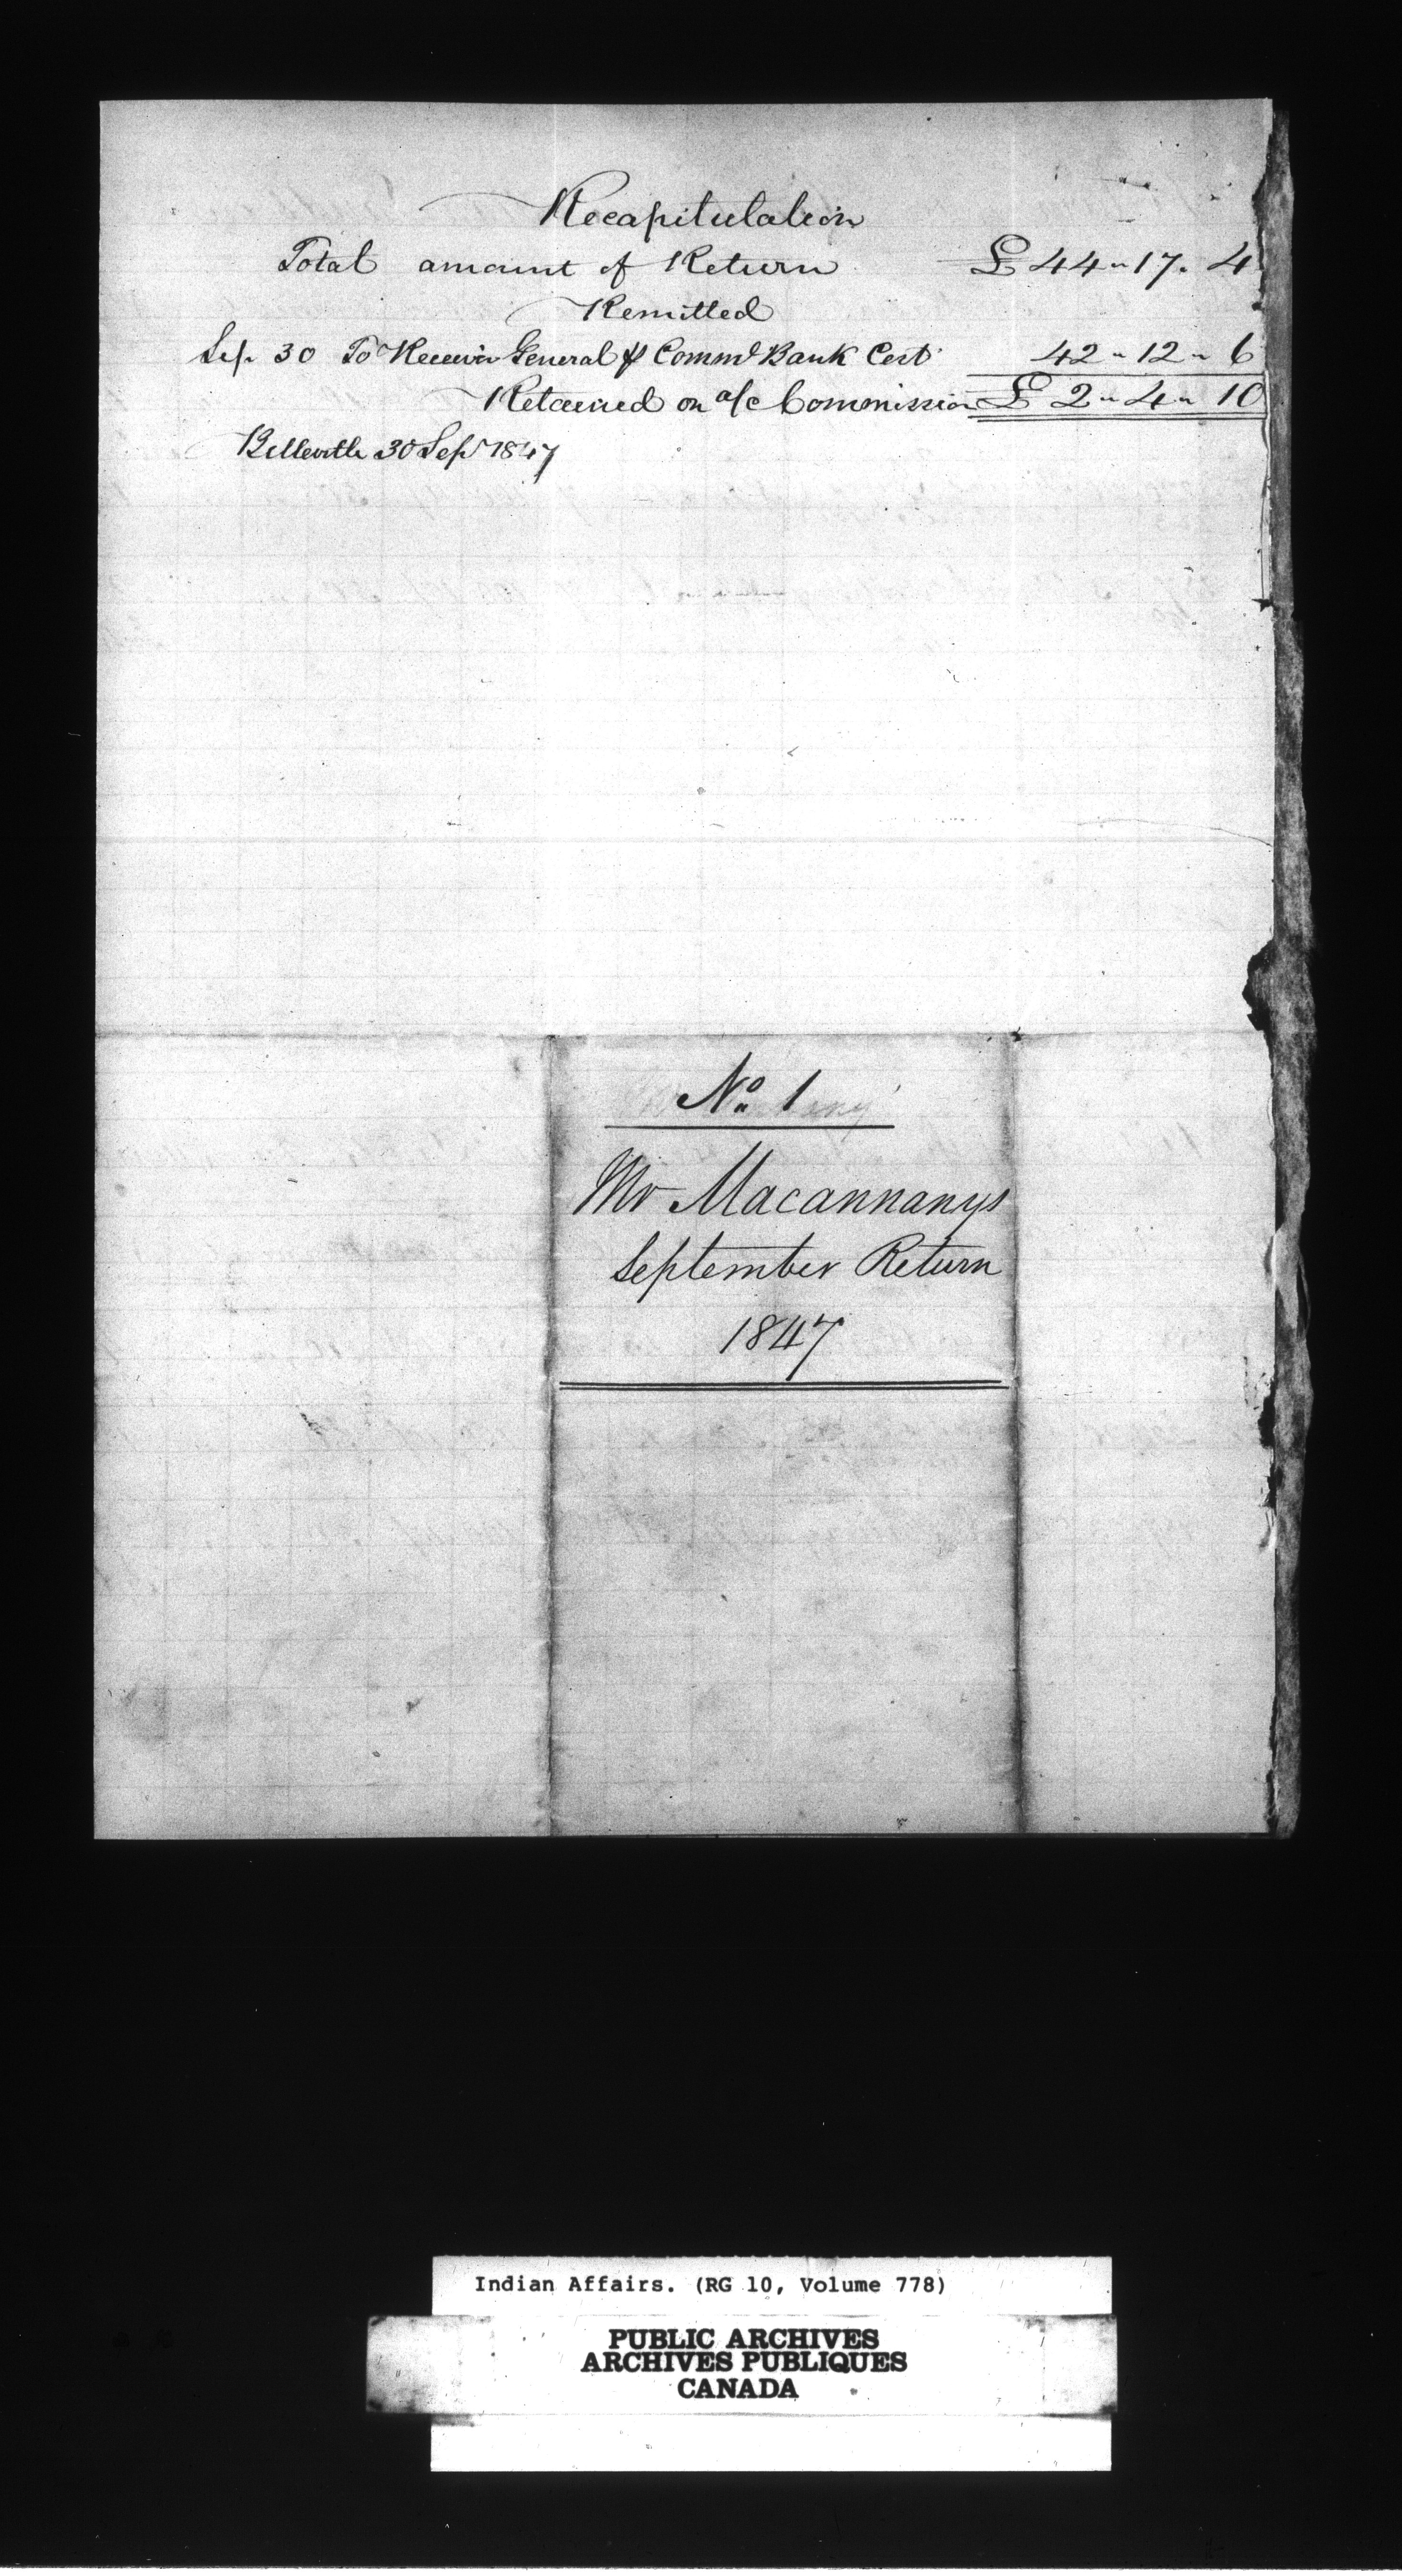 Recapitulation
Total amount of Return £ 44 " 17 . 4
Remitted
Sep. 30 To Receiver General pr Comml Bank Cert 42 " 12 " 6
Retained on a/c Commission £ 2 " 4 " 10
Belleville 30 Sepr 1847
No. 1
Mr Macannanys
September Return
1847
Indian Affairs. (RG 10, Volume 778)
PUBLIC ARCHIVES
ARCHIVES PUBLIQUES
CANADA